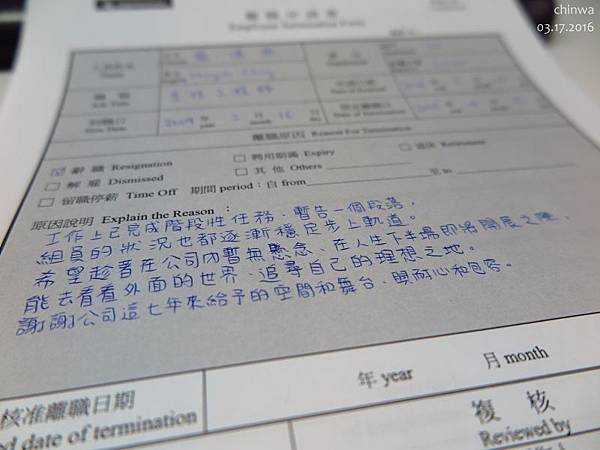 chinwa
03.17.2016
離職申請書
職稱
Job Title
到職日
2009 年 year 2 月 month 16 日
離職原因 Reason For Termination
☑ 辭職 Resignation □ 聘用期滿 Expiry □ 退休 Retirement
□ 解雇 Dismissed □ 其他 Others
□ 留職停薪 Time Off 期間 period：自 from 至 to
原因說明 Explain the Reason：
工作上已完成階段性任務，暫告一個段落，
組員的狀況也都逐漸穩定步上軌道。
希望趁著在公司內暫無懸念、在人生下半場即將開展之際，
能去看看外面的世界、追尋自己的理想之地。
謝謝公司這七年來給予的空間和舞台、與耐心和包容。
核准離職日期
ed date of termination
年 year 月 month
複核
Reviewed by